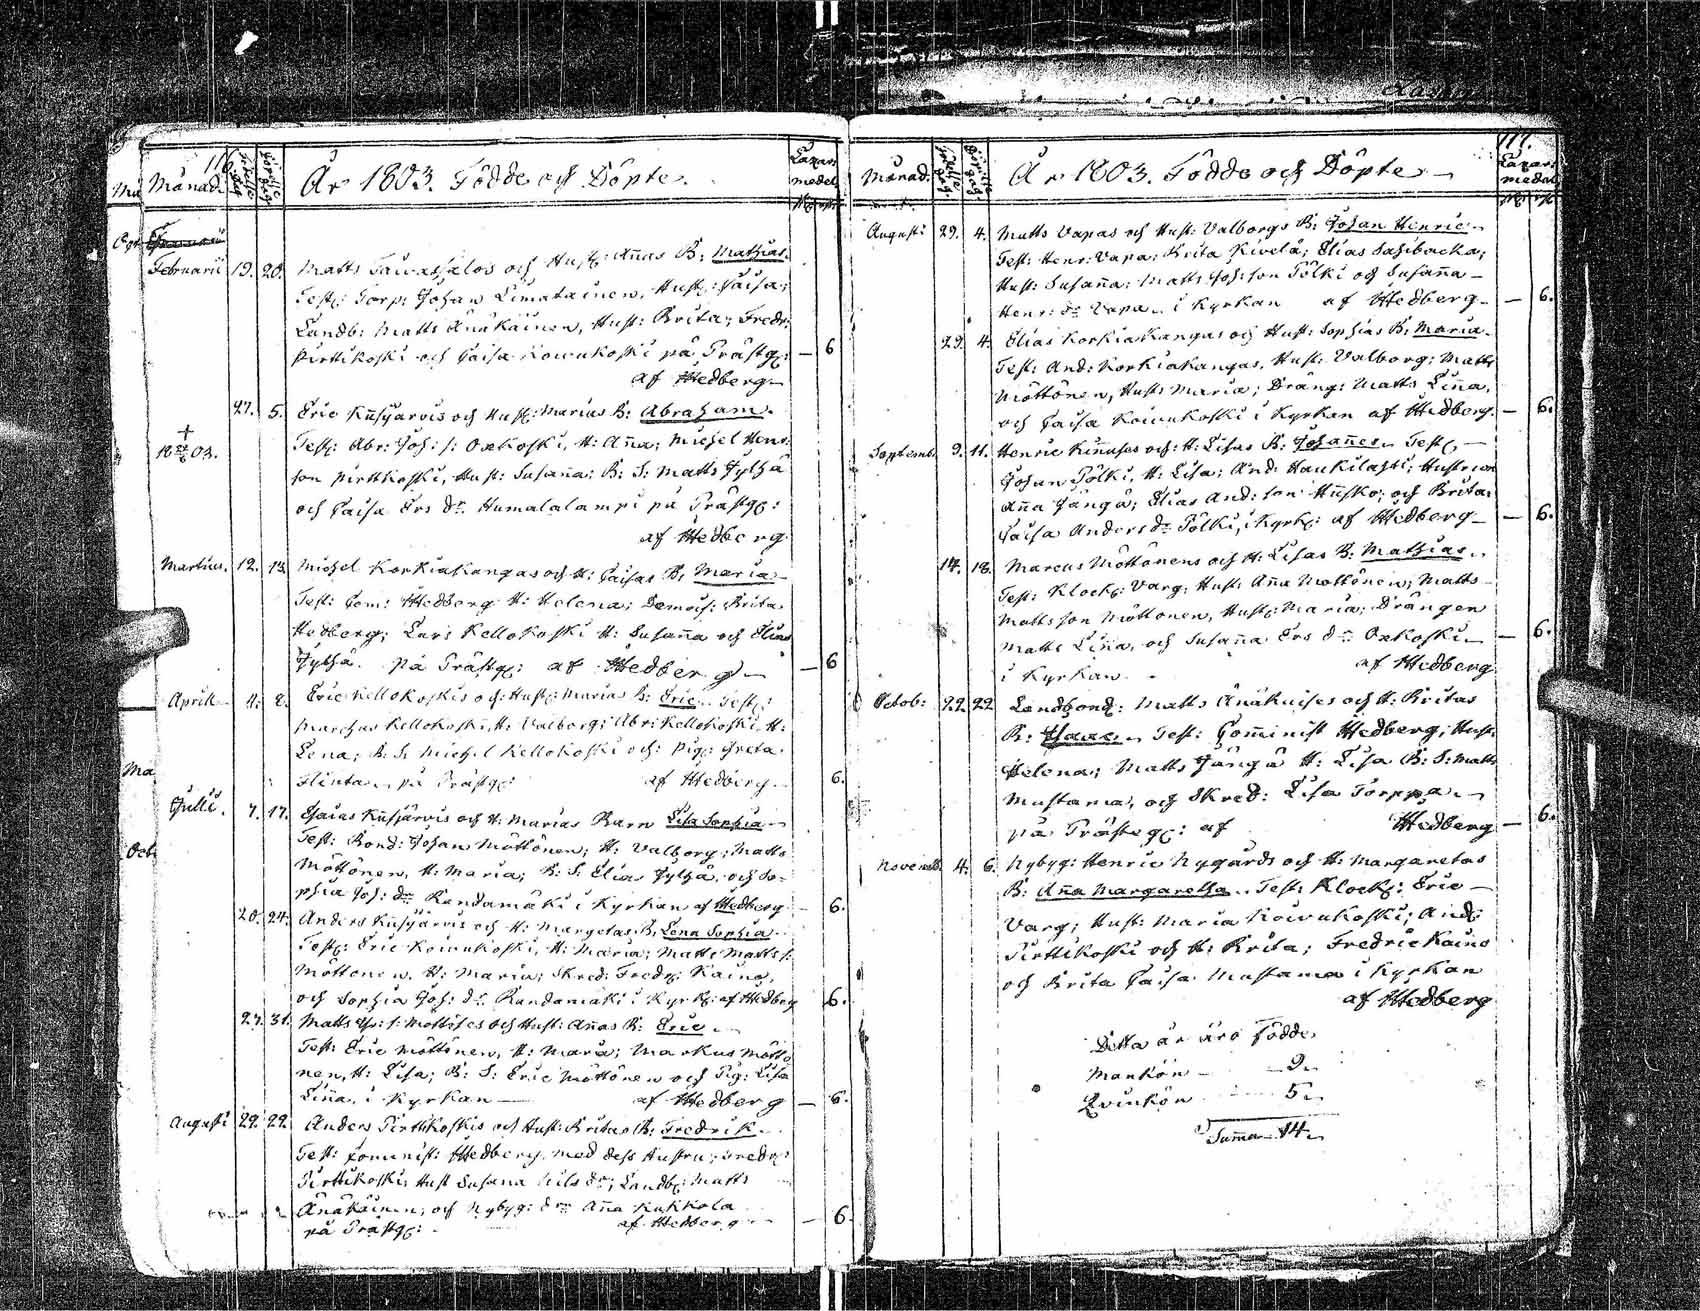 116.
Månad.
År 1803. Födde och Döpte.
Lazar:
medel
Februarii 19. 20. Matts Taiwassalos och Hust: Annas B: Mathias.
Test: Torp: Johan Limatainen, Hust: Caisa;
Landb: Matts Änäkäinen, Hust: Brita; Fredr:
Pirttikoski och Caisa Koiwukoski på Prästg: — 6
af Hedberg
27. 5. Eric Kusijärvis och Hust: Marias B: Abraham.
Test: Abr: Joh: s: Oxkoski, H: Anna; Michel Henr:
son Pirttikoski, Hust: Susanna; B: S: Matts Jylhä
och Caisa Ers dr Humalalampi på Prästg:
af Hedberg
Martius. 12. 13. Michel Korkiakangas och H: Caisas B: Maria
Test: Com: Hedberg H: Helena; Demois: Brita
Hedberg; Lars Kellokoski H: Susanna och Elias
Jylhä på Prästg: af Hedberg — 6
April 4. 8. Eric Kellokoskis och Hust: Marias B: Eric Test:
Marchus Kellokoski, H: Valborg; Abr: Kellokoski, H:
Lena; B: S: Michel Kellokoski och Pig: Greta
Flinta på Prästg: af Hedberg 6.
Julii. 7. 17. Esaias Kusijärvis och H: Marias Barn Lisa Sophia
Test: Bond: Johan Möttönen; H: Valborg; Matts
Möttönen, H: Maria; B: S: Elias Jylhä, och So-
phia Joh: dr Randamäki i Kyrkan af Hedberg 6.
20. 24. Anders Kusijärvis och H: Margetas B: Lena Sophia
Test: Eric Koiwukoski, H: Maria; Matts Matts s:
Möttönen, H: Maria; Skred: Fredr: Kaino,
och Sophia Joh: dr Randamäki i Kyrk: af Hedberg 6.
27. 31. Matts Möttises och Hust: Annas B: Eric
Test: Eric Möttönen, H: Maria; Markus Mötto
nen, H: Lisa; B: S: Eric Möttönen och Pig: Lisa
Linna, i Kyrkan — af Hedberg — 6.
Augusti 22. 22. Anders Pirttikoskis och Hust: Britas B: Fredrik
Test: Comminist: Hedberg med dess Hustru; Fredr:
Pirttikoski, Hust Susana Nils dr; Landb: Matts
Änäkäinen; och Nybyg: drn Anna Kukkola
på Prästg: af Hedberg — 6
117.
Månad.
År 1803. Födde och Döpte
Lazar:
medel
Augusti 29. 4. Matts Vapas och Hust: Valborgs B: Johan Henric
Test: Henr: Vapa; Brita Kivelä; Elias Sahibacka;
Hust: Susanna; Matts Joh: son Pölki och Susanna
Henr: dr Vapa i Kyrkan af Hedberg — 6.
29. 4. Elias Korkiakangas och Hust: Sophias B: Maria
Test: And: Korkiakangas, Hust: Valborg; Matts
Möttönen, Hust: Maria; Dräng: Matts Linna,
och Caisa Koiwukoski i Kyrkan af Hedberg. — 6.
Septemb. 9. 11. Henric Kinnuses och H: Lisas B: Johannes Test:
Johan Pölki, H: Lisa; And: Haukilahti; Hustrun
Anna Jängä; Elias And: son Husko; och Brita
Caisa Anders dr Pölki, i Kyrk: af Hedberg — 6.
14. 18. Marcus Möttönens och H: Lisas B: Mathias
Test: Klock: Varg, Hust: Anna Möttönen; Matts
Matts son Möttönen, Hust: Maria; Drängen
Matts Linna, och Susanna Ers dr Oxkoski — 6.
i Kyrkan. af Hedberg
Octob: 22. 22 Landbond: Matts Änäkuises och H: Britas
B: Isaac. Test: Comminist Hedberg; Hust:
Helena; Matts Jängä H: Lisa B: S: Matts
Mustama, och Skred: Lisa Torppa
på Prästeg: af Hedberg — 6.
Novemb. 4. 6. Nybyg: Henric Nygårds och H: Margaretas
B: Anna Margaretha. Test: Klock: Eric
Varg; Hust: Maria Koiwukoski; And:
Pirttikoski och H: Brita; Fredric Kaino
och Brita Caisa Mustama i Kyrkan
af Hedberg
Detta år äro Födde
Mankön — 9
Qvinkön — 5
Summa 14